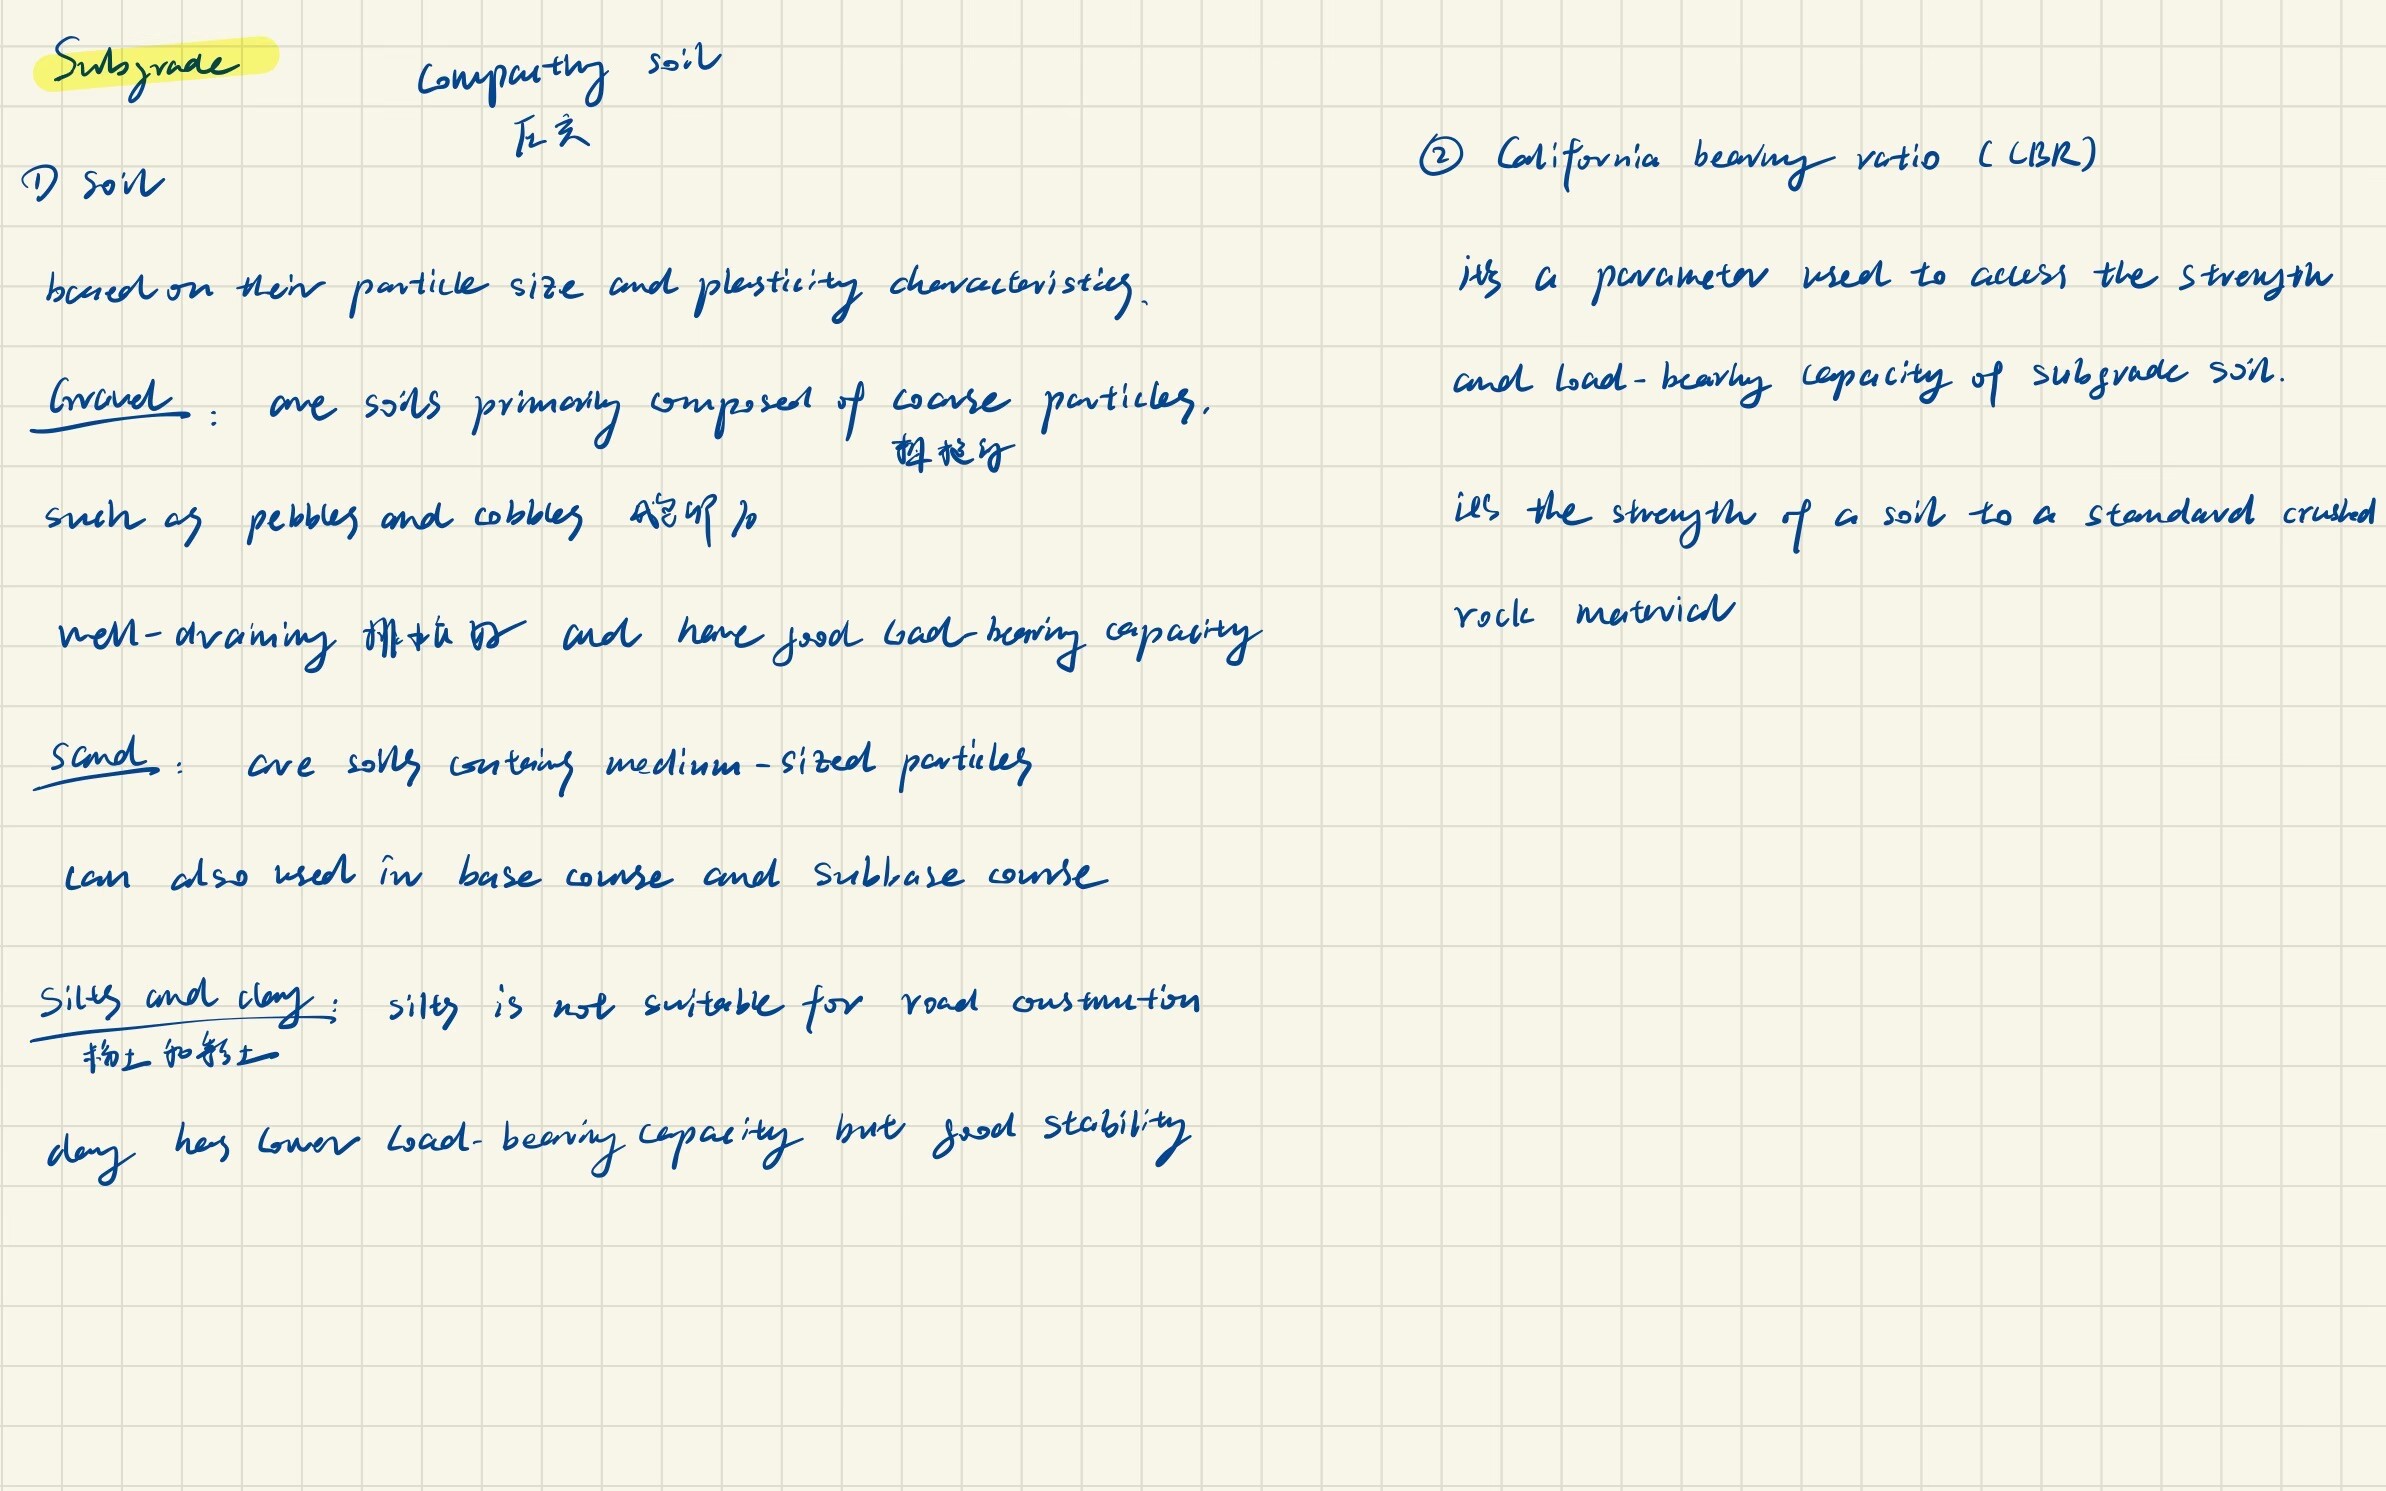 Subgrade
Compacting soil
压实
① soil
based on their particle size and plasticity characteristics.
Gravel : are soils primarily composed of coarse particles.
such as pebbles and cobbles
well-draining 排水良好 and have good load-bearing capacity
Sand : are soils contains medium-sized particles
can also used in base course and subbase course
Silts and clay : silts is not suitable for road construction
粉土和黏土
clay has lower load-bearing capacity but good stability
② California bearing ratio (CBR)
its a parameter used to access the strength
and load-bearing capacity of subgrade soil.
its the strength of a soil to a standard crushed
rock material